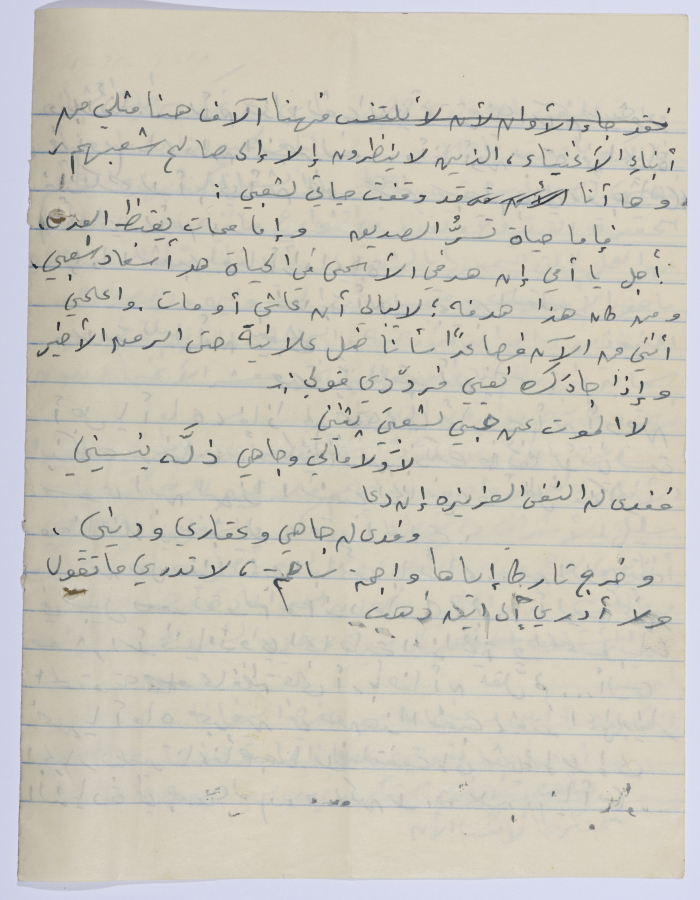 فقد جاء الأوان لأن لا يلتفت فهنا آلاف هنا مثلي من
أبناء الأغنياء، الذين لا ينظرون إلا إلى صالح شعبهم
وها أنا قد وقفت حياتي لشعبي :
فإما حياة تسرُّ الصديق وإما ممات يغيظ العدى.
أجل يا أمي إن هدفي الأسمى في الحياة هو أسعاد شعبي.
ومن كان هذا هدفه؛ لا يبالي أن عاش أو مات. واعلمي
أنني من الآن فصاعدًا سأناضل علانية حتى الرمق الأخير
وإذا جاءَك نعيي فردّدي قولي :ـ
لا الموت عن حبي لشعبي يثنيني
لا ولا مالي وجاهي ذلَّه ينسيني
ففدى له النفس العزيزه إن دعا
وفدى له جاهي وعقاري وديني .
وخرج تاركا إياها واجمة ساهمة، لا تدري ما تقول
ولا أدري إلى أين ذهب